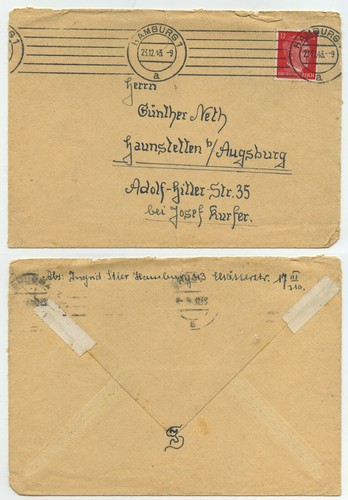 HAMBURG 1
23.12.43.-9
a
HAMBURG 1
43.-9
a
12
Herrn
Günther Neth
Haunstetten b/Augsburg
Adolf-Hitler-Str. 35
bei Josef Kurfer.
Abs. Ingrid Stier Hamburg 13 Elsässerstr. 17 III